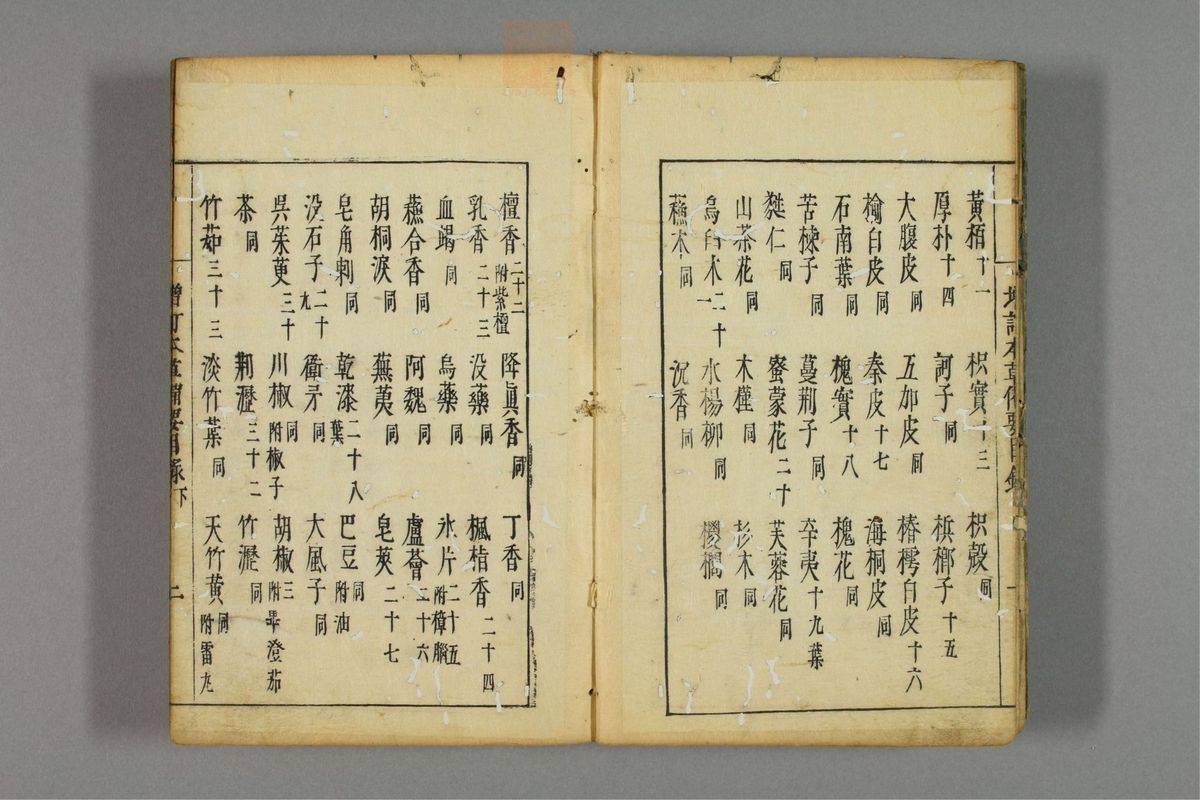 黃栢十一 枳實十三 枳殼同
厚朴十四 訶子同 梹榔子十五
大腹皮同 五加皮同 椿樗白皮十六
榆白皮同 秦皮十七 海桐皮同
石南葉同 槐實十八 槐花同
苦楝子同 蔓荆子同 辛夷十九葉
蕤仁同 蜜蒙花二十 芙蓉花同
山茶花同 木槿同 杉木同
烏臼木二十一 水楊柳同 椶櫚同
蘓木同 沉香同
檀香二十二附紫檀 降真香同 丁香同
乳香二十三 没藥同 楓脂香二十四
血竭同 烏藥同 氷片二十五附樟腦
蘓合香同 阿魏同 盧薈二十六
胡桐淚同 蕪荑同 皂莢二十七
皂角刺同 乾漆二十八葉 巴豆同附油
没石子二十九 衛矛同 大風子同
吳茱萸三十 川椒同附椒子 胡椒三附畢澄茄
茶同 荆瀝三十二 竹瀝同
竹茹三十三 淡竹葉同 天竹黄同附雷丸
增訂本草備要目錄下 二